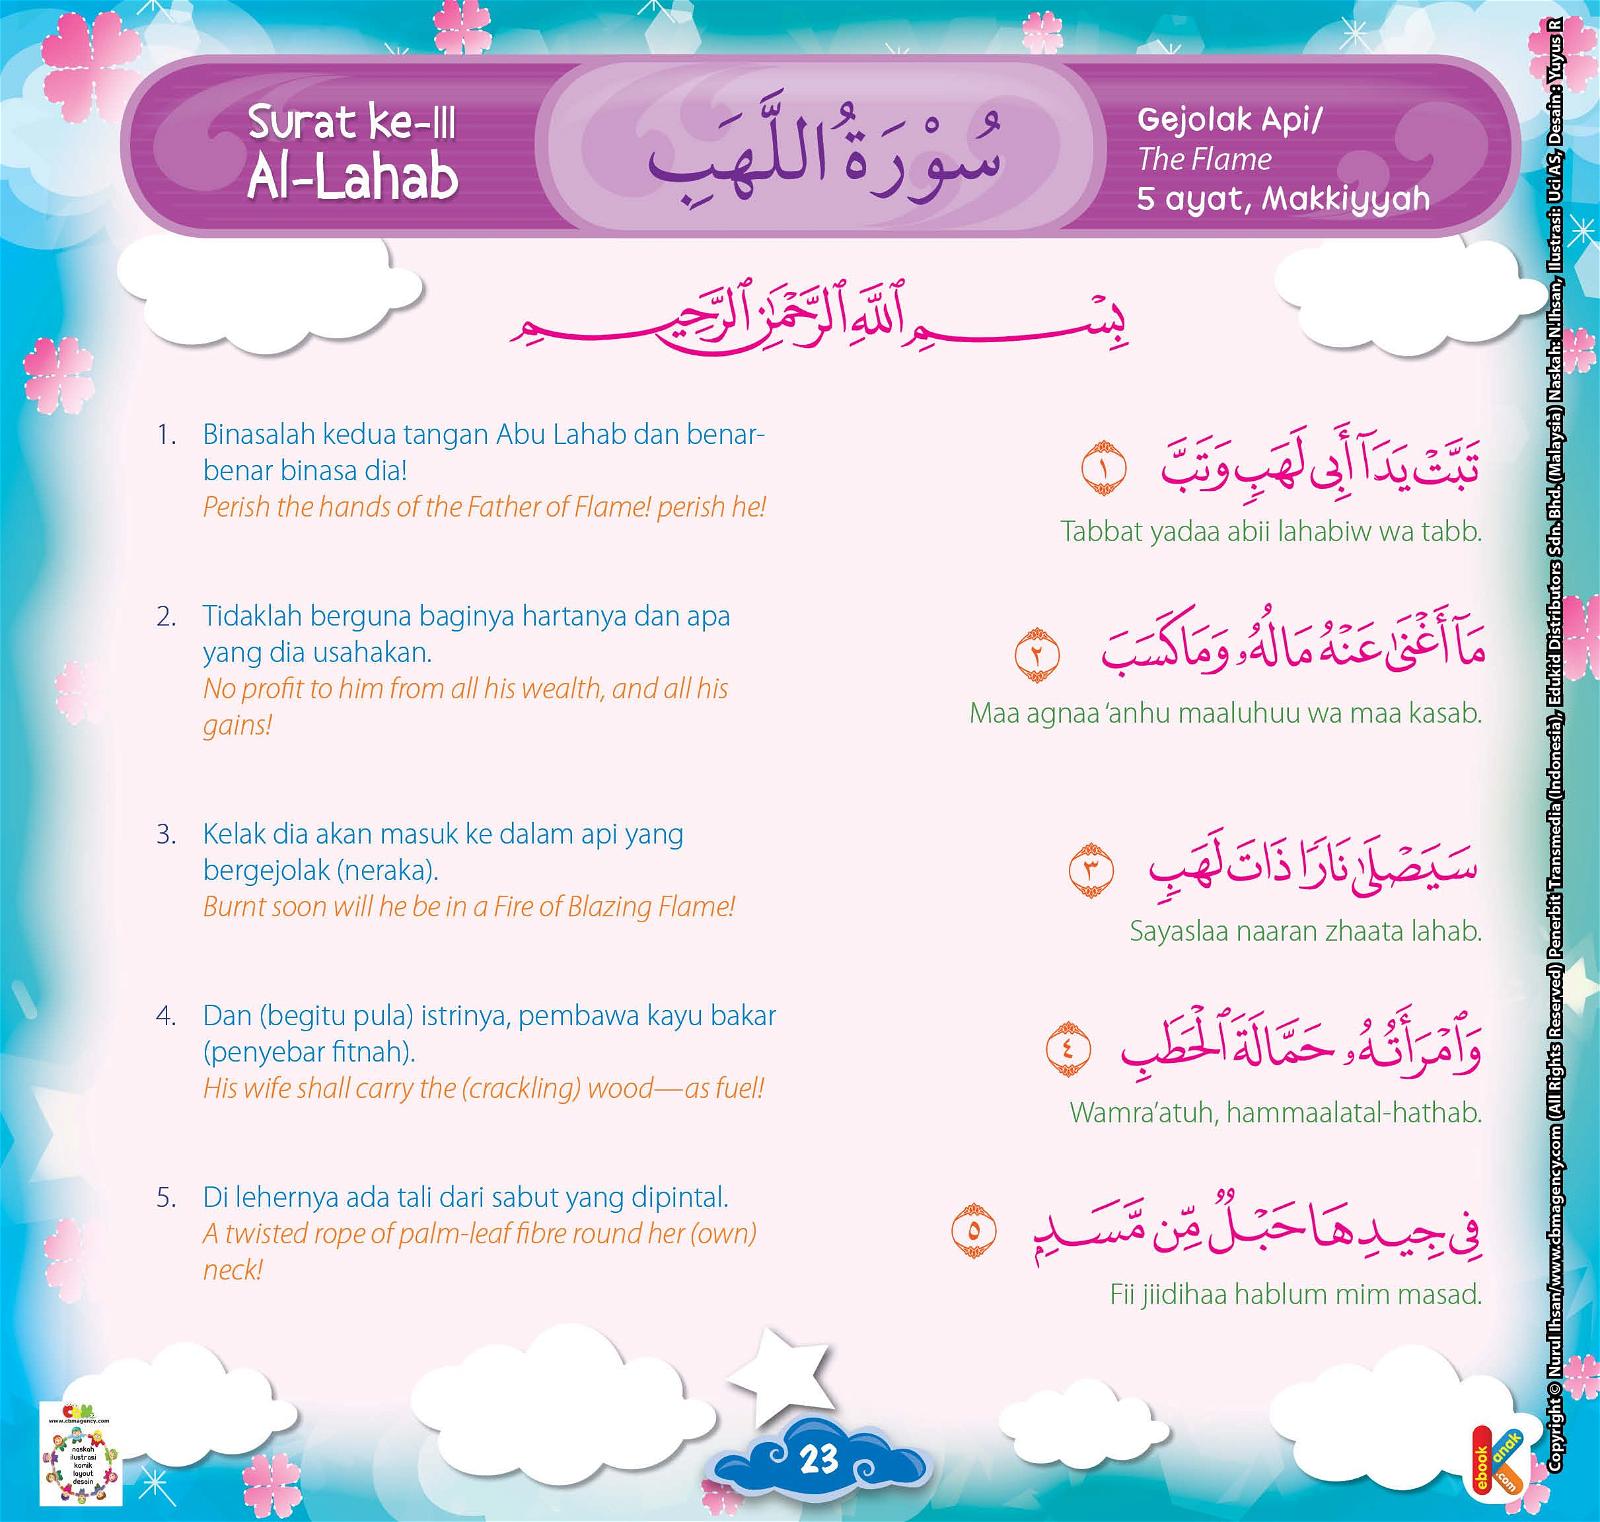 Surat ke-111
Al-Lahab
سُوْرَةُ اللَّهَبِ
Gejolak Api/
The Flame
5 ayat, Makkiyyah
بِسْمِ ٱللَّهِ ٱلرَّحْمَٰنِ ٱلرَّحِيمِ
1. Binasalah kedua tangan Abu Lahab dan benar-
benar binasa dia!
Perish the hands of the Father of Flame! perish he!
تَبَّتْ يَدَآ أَبِى لَهَبٍ وَتَبَّ ١
Tabbat yadaa abii lahabiw wa tabb.
2. Tidaklah berguna baginya hartanya dan apa
yang dia usahakan.
No profit to him from all his wealth, and all his
gains!
مَآ أَغْنَىٰ عَنْهُ مَالُهُۥ وَمَا كَسَبَ ٢
Maa agnaa ‘anhu maaluhuu wa maa kasab.
3. Kelak dia akan masuk ke dalam api yang
bergejolak (neraka).
Burnt soon will he be in a Fire of Blazing Flame!
سَيَصْلَىٰ نَارًا ذَاتَ لَهَبٍ ٣
Sayaslaa naaran zhaata lahab.
4. Dan (begitu pula) istrinya, pembawa kayu bakar
(penyebar fitnah).
His wife shall carry the (crackling) wood—as fuel!
وَٱمْرَأَتُهُۥ حَمَّالَةَ ٱلْحَطَبِ ٤
Wamra’atuh, hammaalatal-hathab.
5. Di lehernya ada tali dari sabut yang dipintal.
A twisted rope of palm-leaf fibre round her (own)
neck!
فِى جِيدِهَا حَبْلٌ مِّن مَّسَدٍۭ ٥
Fii jiidihaa hablum mim masad.
23
www.cbmagency.com
naskah
ilustrasi
komik
layout
desain
ebook
anak
.com
Copyright © Nurul Ihsan/www.cbmagency.com (All Rights Reserved) Penerbit Transmedia (Indonesia), Edukid Distributors Sdn. Bhd. (Malaysia) Naskah: N.Ihsan, Ilustrasi: Uci AS, Desain: Yuyus R